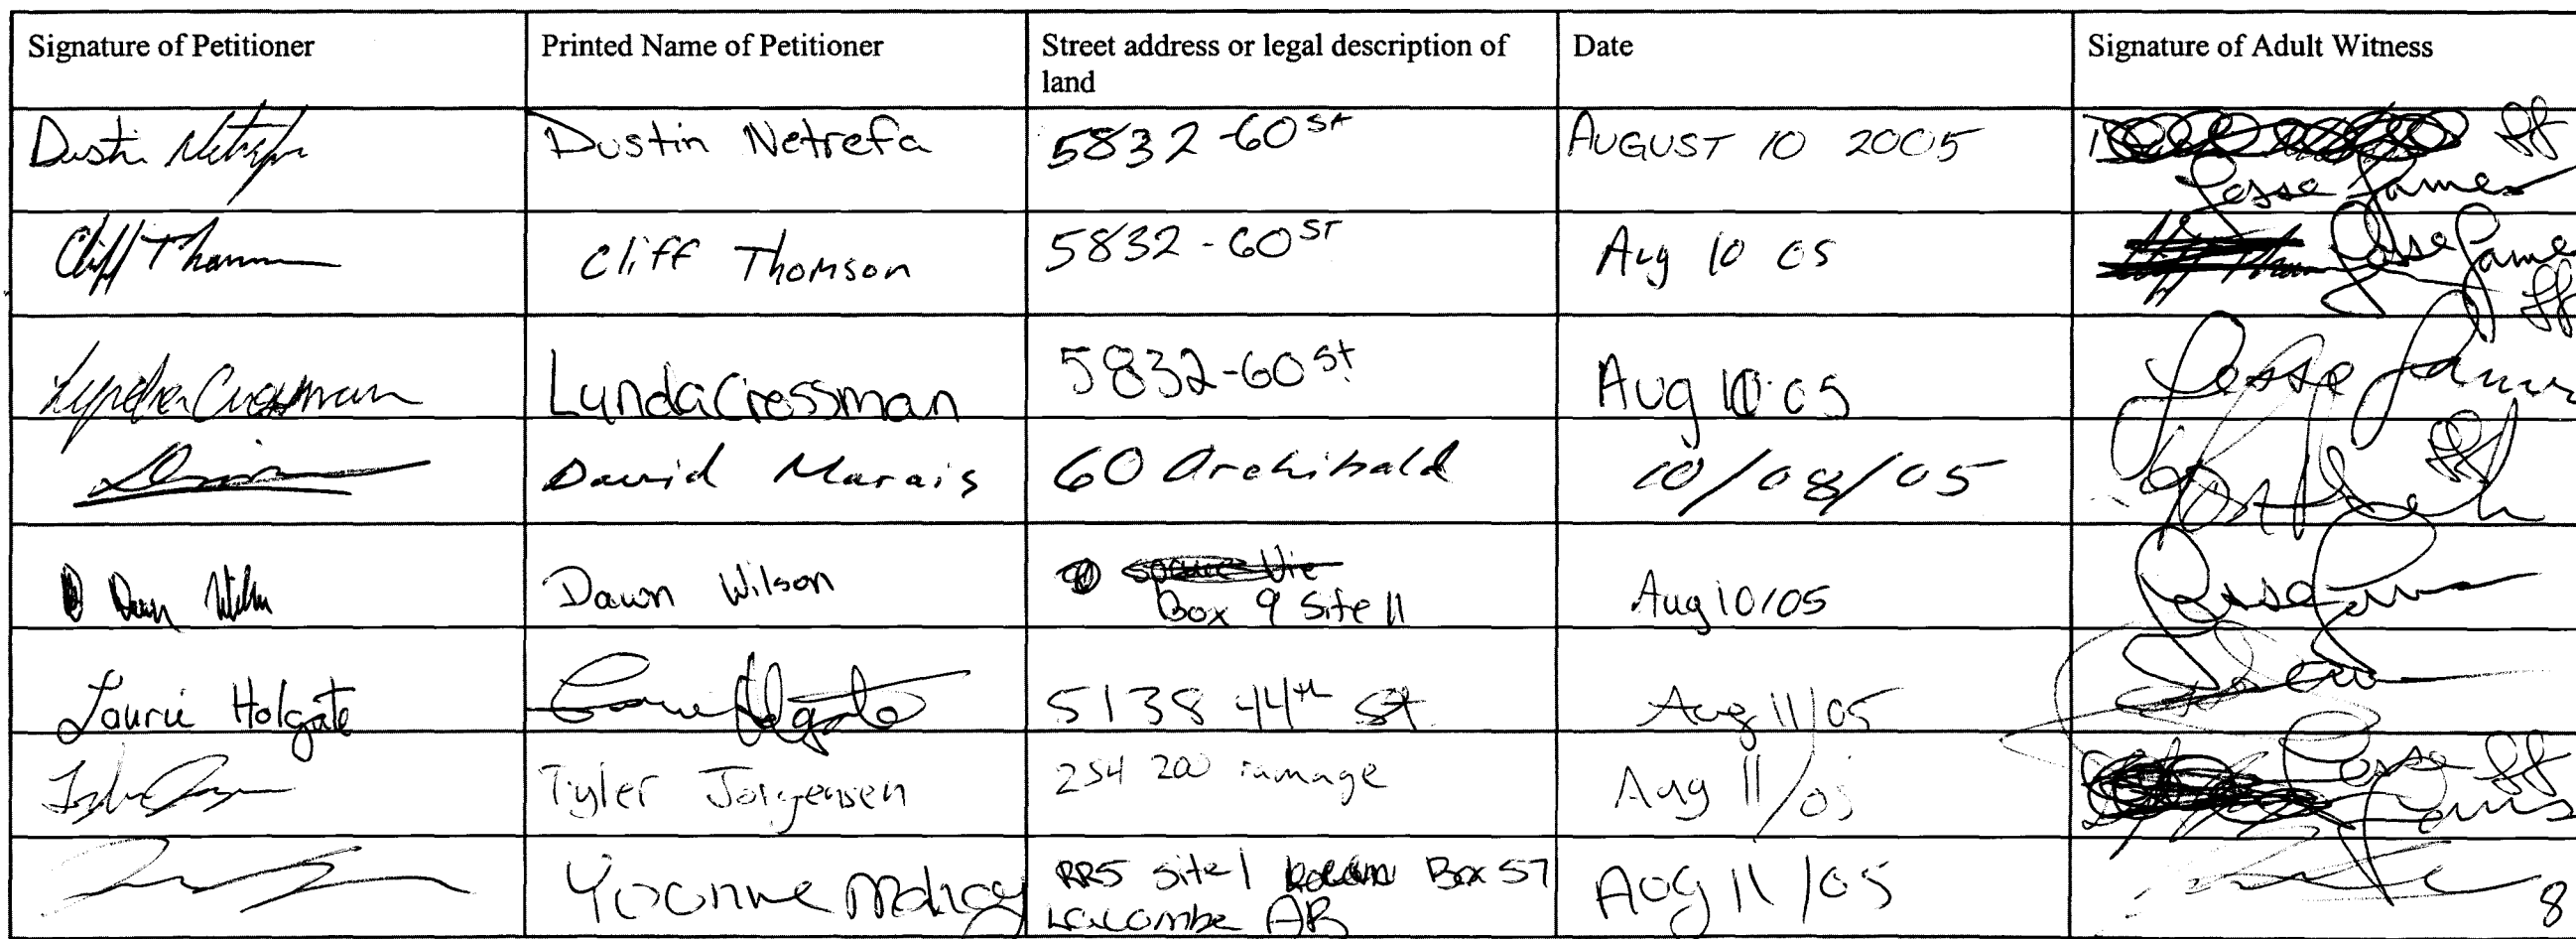 Signature of Petitioner
Printed Name of Petitioner
Street address or legal description of
land
Date
Signature of Adult Witness
Dustin Netrefa Dustin Netrefa 5832-60 St AUGUST 10 2005
Jesse James
Cliff Thomson Cliff Thomson 5832-60 ST Aug 10 05 Jesse James
Lynda Cressman Lynda Cressman 5832-60 St Aug 10 05 Jesse James
David Marais 60 Archibald 10/08/05
Dawn Wilson Dawn Wilson
Box 9 Site 11 Aug 10/05 Jesse James
Laurie Holgate Laurie Holgate 5138 44th St Aug 11/05
Tyler Jorgensen 254 200 ramage Aug 11/05 Jesse James
Yvonne RR5 Site 1 Box 57
Lacombe AB Aug 11/05
8